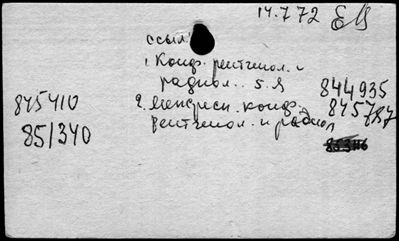 14.7.72
ссыл
1. Конф. рентгенол. и
радиол.. 5. Я
844935
845410
2. конф.
845787
85/340
рентгенол. и радиол